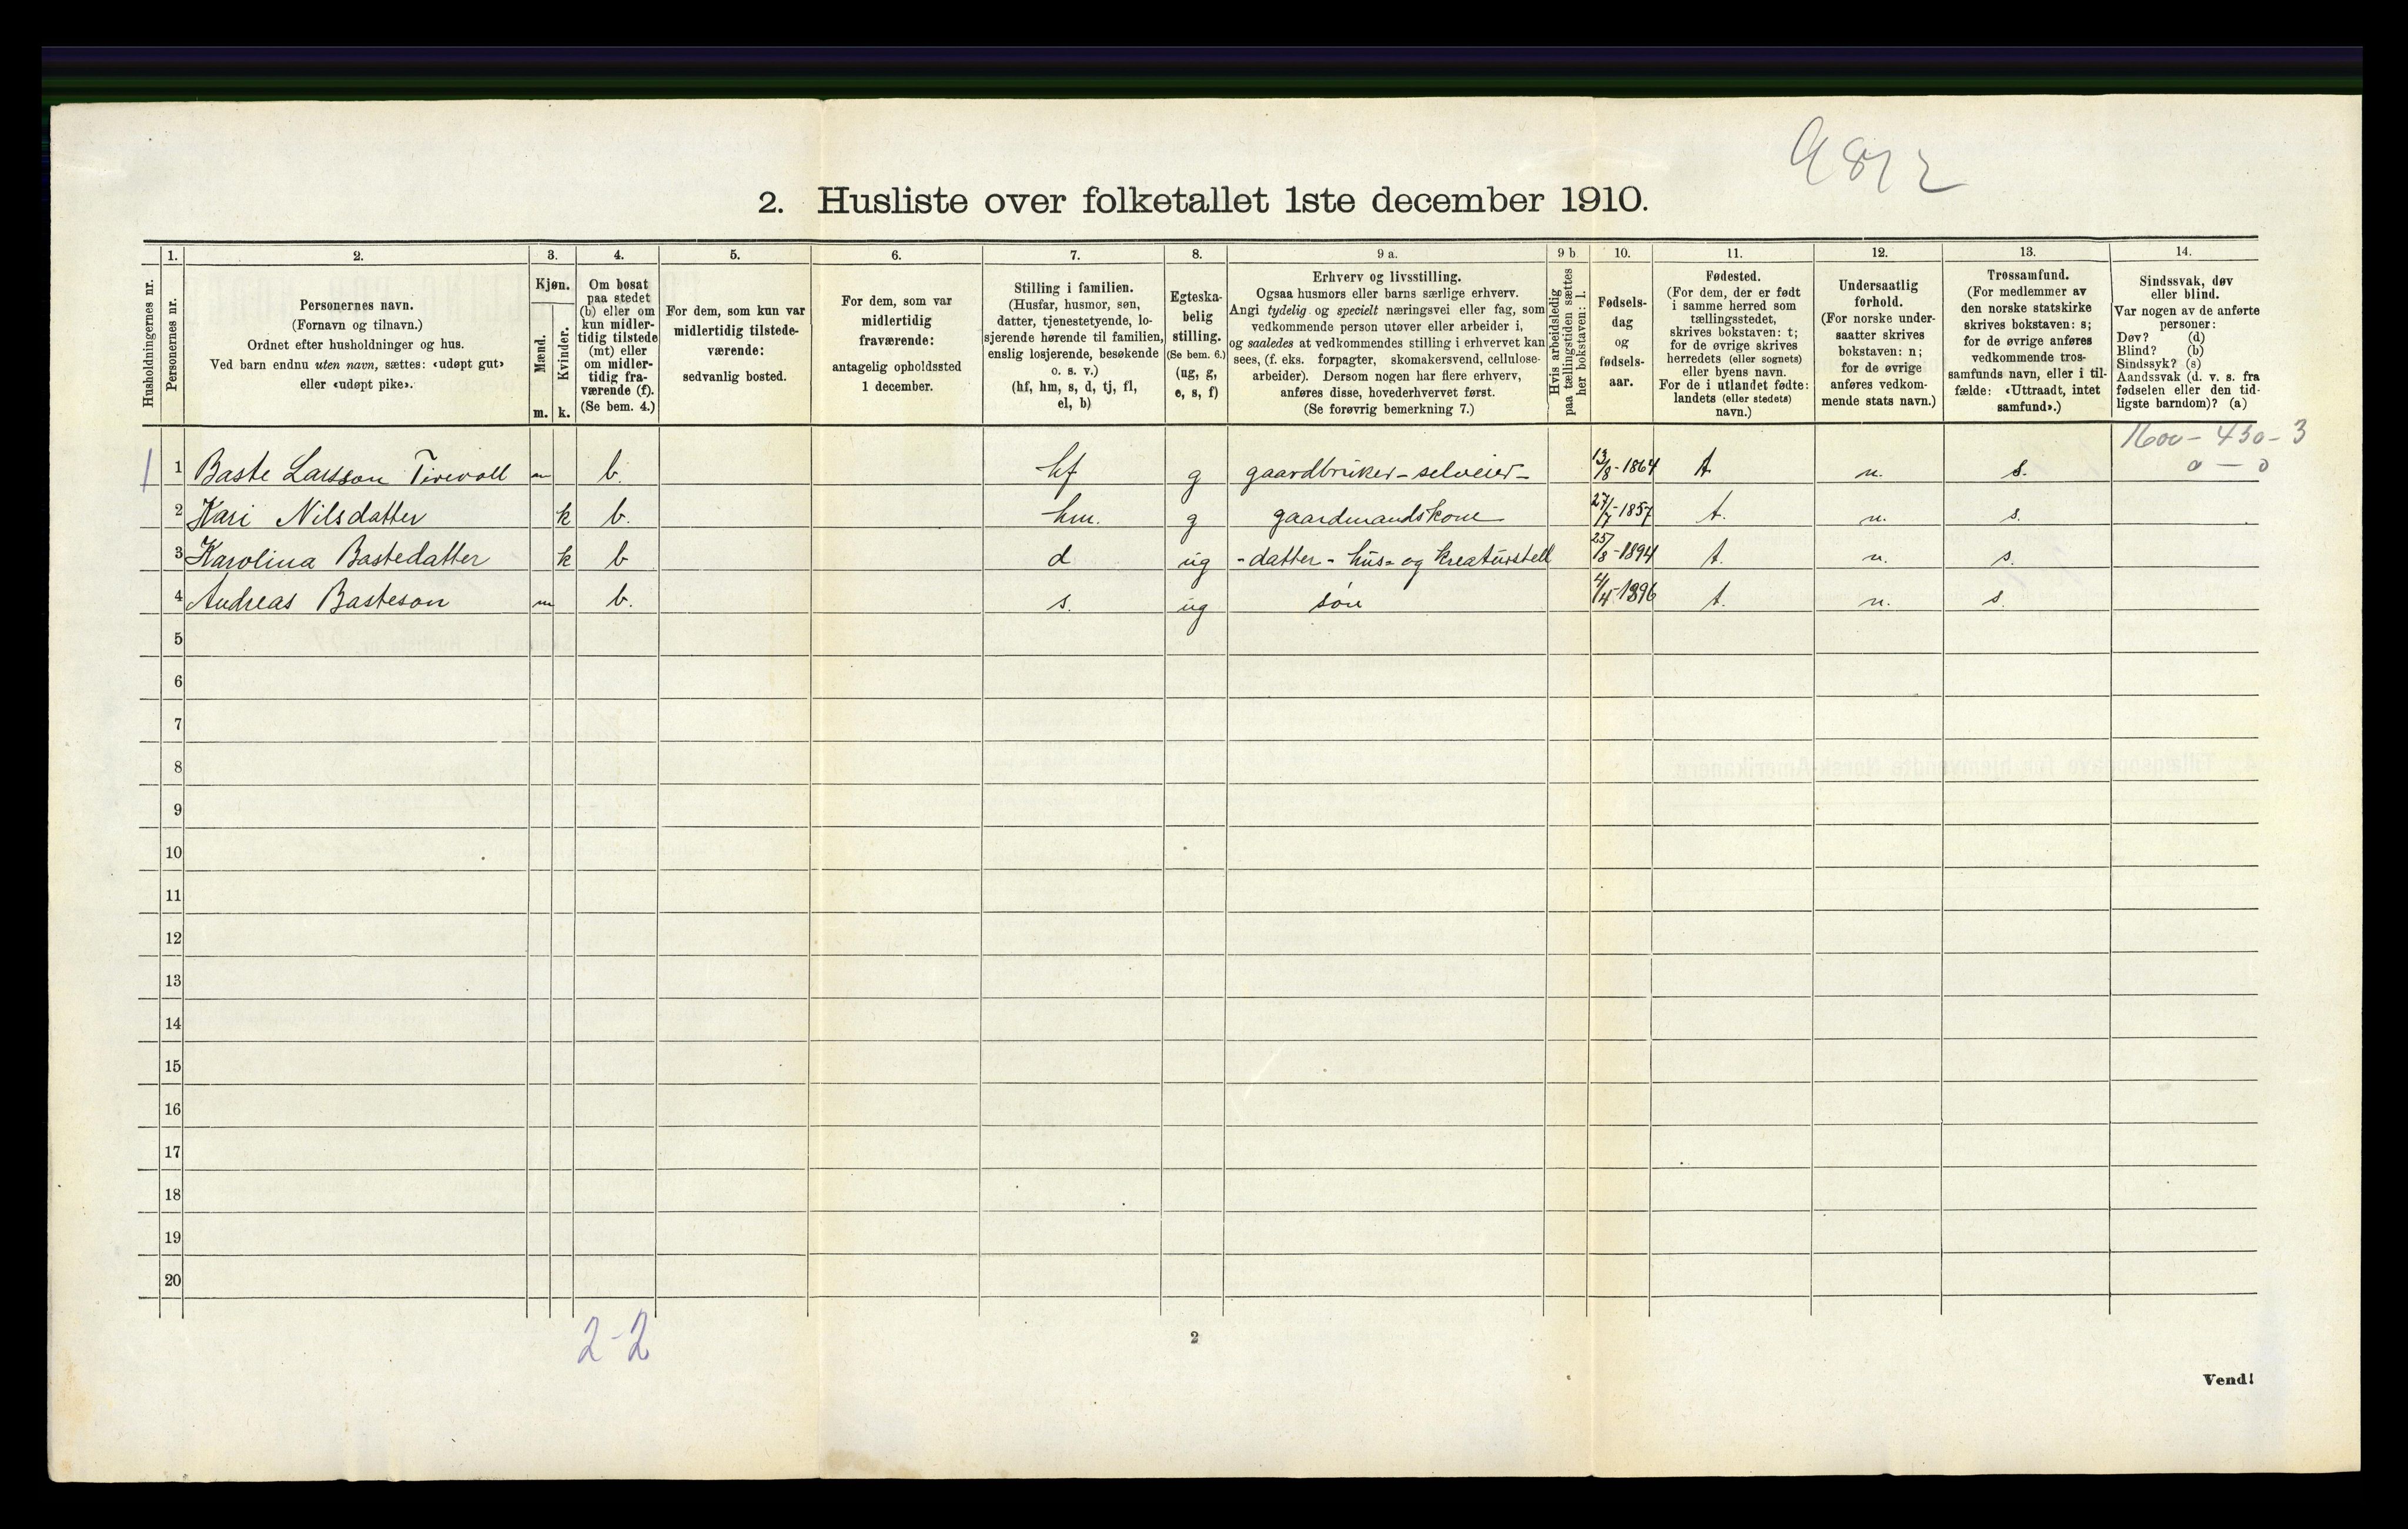 9812
2. Husliste over folketallet 1ste december 1910.
Husholdningernes nr.
1.
Personernes nr.
2.
Personernes navn.
(Fornavn og tilnavn.)
Ordnet efter husholdninger og hus.
Ved barn endnu uten navn, sættes: «udøpt gut»
eller «udøpt pike».
3.
Kjøn.
Mænd.
m.
Kvinder.
k.
4.
Om bosat
paa stedet
(b) eller om
kun midler-
tidig tilstede
(mt) eller
om midler-
tidig fra-
værende (f).
(Se bem. 4.)
5.
For dem, som kun var
midlertidig tilstede-
værende:
sedvanlig bosted.
6.
For dem, som var
midlertidig
fraværende:
antagelig opholdssted
1 december.
7.
Stilling i familien.
(Husfar, husmor, søn,
datter, tjenestetyende, lo-
sjerende hørende til familien,
enslig losjerende, besøkende
o. s. v.)
(hf, hm, s, d, tj, fl,
el, b)
8.
Egteska-
belig
stilling.
(Se bem. 6.)
(ug, g,
e, s, f)
9 a.
Erhverv og livsstilling.
Ogsaa husmors eller barns særlige erhverv.
Angi tydelig og specielt næringsvei eller fag, som
vedkommende person utøver eller arbeider i,
og saaledes at vedkommendes stilling i erhvervet kan
sees, (f. eks. forpagter, skomakersvend, cellulose-
arbeider). Dersom nogen har flere erhverv,
anføres disse, hovederhvervet først.
(Se forøvrig bemerkning 7.)
9 b.
Hvis arbeidsledig
paa tællingstiden sættes
her bokstaven: l.
10.
Fødsels-
dag
og
fødsels-
aar.
11.
Fødested.
(For dem, der er født
i samme herred som
tællingsstedet,
skrives bokstaven: t;
for de øvrige skrives
herredets (eller sognets)
eller byens navn.
For de i utlandet fødte:
landets (eller stedets)
navn.)
12.
Undersaatlig
forhold.
(For norske under-
saatter skrives
bokstaven: n;
for de øvrige
anføres vedkom-
mende stats navn.)
13.
Trossamfund.
(For medlemmer av
den norske statskirke
skrives bokstaven: s;
for de øvrige anføres
vedkommende tros-
samfunds navn, eller i til-
fælde: «Uttraadt, intet
samfund».)
14.
Sindssvak, døv
eller blind.
Var nogen av de anførte
personer:
Døv? (d)
Blind? (b)
Sindssyk? (s)
Aandssvak (d. v. s. fra
fødselen eller den tid-
ligste barndom)? (a)
1600 - 430 - 3
0 - 0
1 1 Baste Larsson Tirevoll m b. hf g gaardbruker - selveier - 13/8 - 1864 t. n. s.
2 Kari Nilsdatter k b. hm. g gaardmandskone 27/7 - 1857 t. n. s.
3 Karolina Bastedatter k b d ug - datter - hus- og kreaturstell 25/8 - 1894 t. n. s.
4 Andreas Basteson m b. s. ug søn 4/4 - 1896 t. n. s.
5
6
7
8
9
10
11
12
13
14
15
16
17
18
19
20
2 - 2
2
Vend!